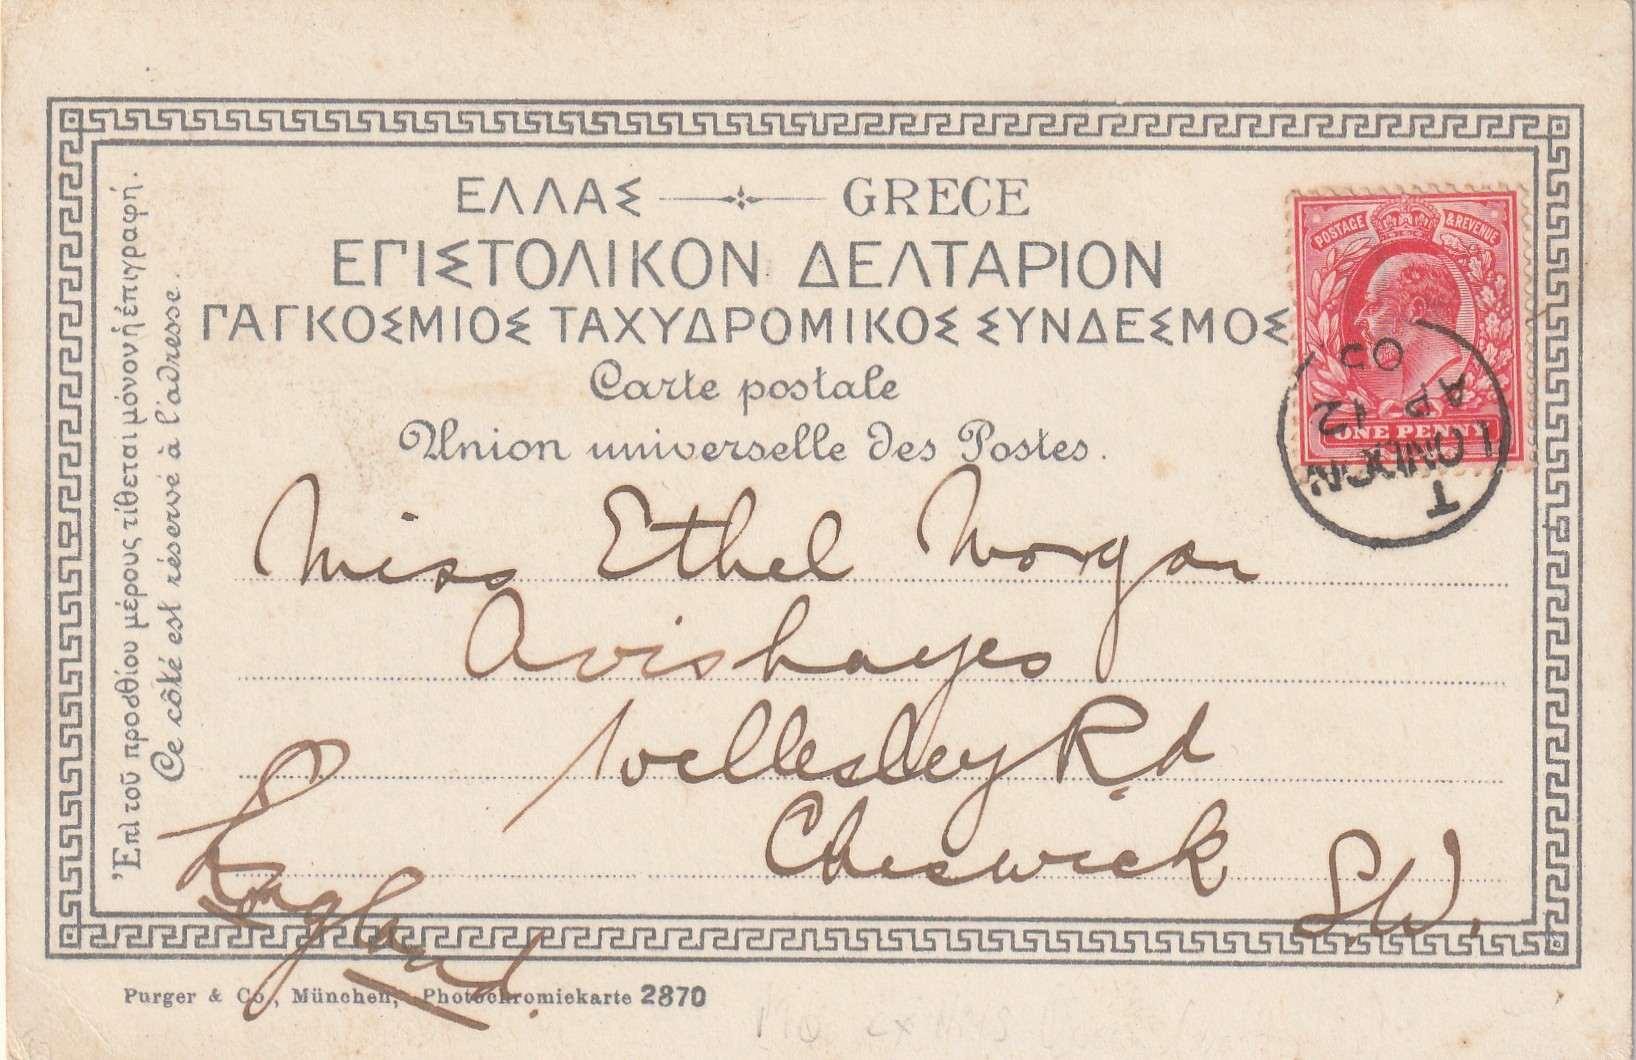 ΕΛΛΑΣ GRECE
ΕΠΙΣΤΟΛΙΚΟΝ ΔΕΛΤΑΡΙΟΝ
ΠΑΓΚΟΣΜΙΟΣ ΤΑΧΥΔΡΟΜΙΚΟΣ ΣΥΝΔΕΣΜΟΣ
Carte postale
Union universelle des Postes.
Ἐπὶ τοῦ προσθίου μέρους τίθεται μόνον ἡ ἐπιγραφή.
Ce côté est réservé à l'adresse.
POSTAGE & REVENUE
ONE PENNY
T
LONDON
AP 12
05
Miss Ethel Morgan
Avishayes
Wellesley Rd
Cheswick
S.W.
England.
Purger & Co., München, Photochromiekarte 2870